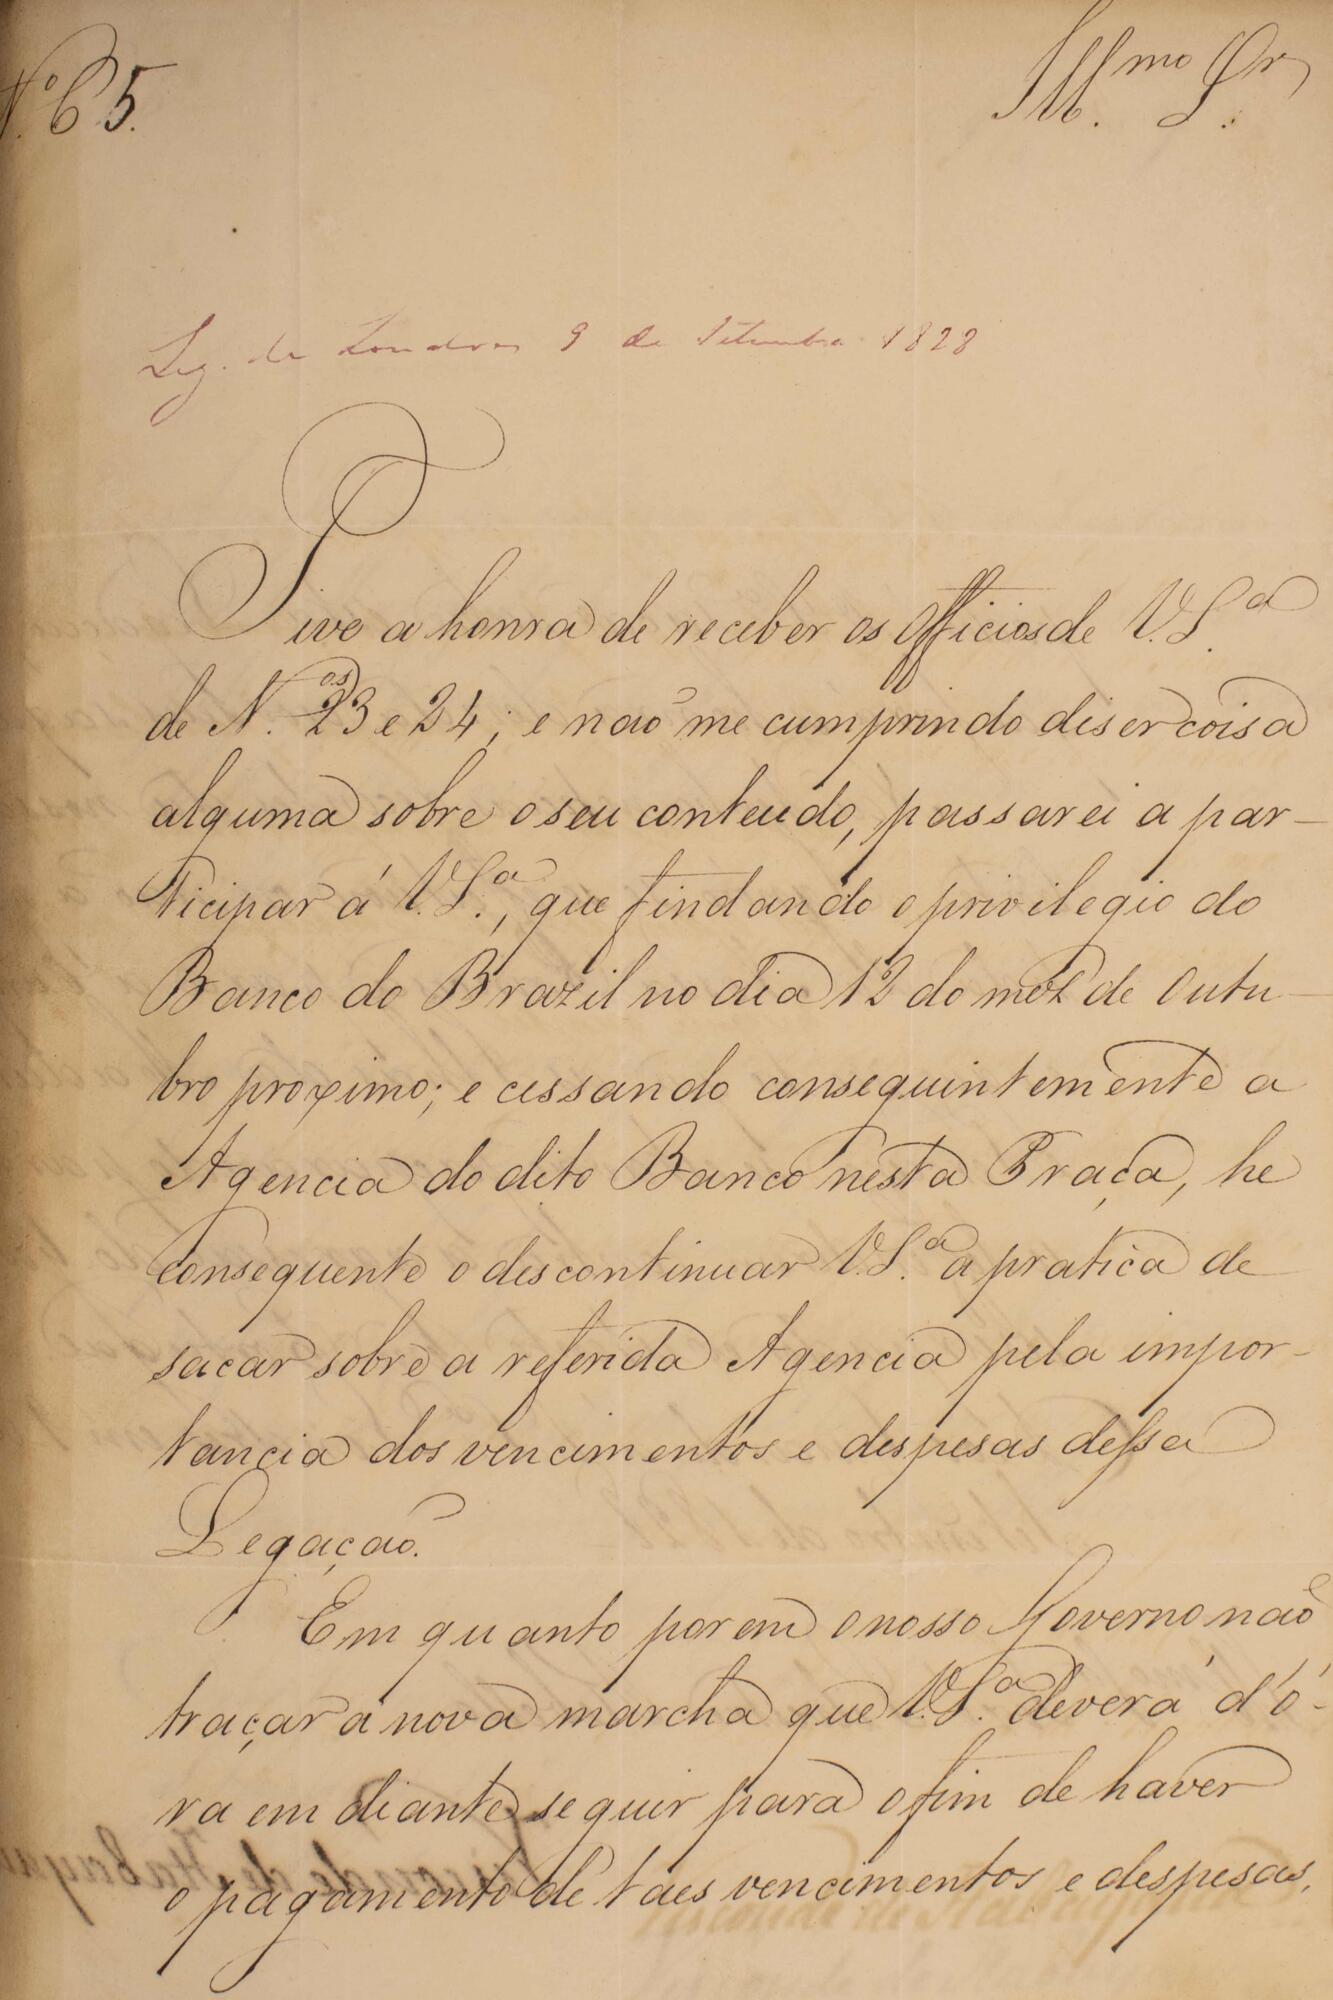 N.º 65.
Ill.mo Sr.
Leg. de Londres 9 de Setembro 1828
Tive a honra de receber os Officios de V.S.ª
de N.os 23 e 24; e naõ me cumprindo diser coisa
alguma sobre o seu conteudo, passarei a par-
ticipar á V.S.ª, que findando o privilegio do
Banco do Brazil no dia 12 do mez de Outu-
bro proximo; e cessando conseguintemente a
Agencia do dito Banco nesta Praça, he
consequente o descontinuar V.S.ª a pratica de
sacar sobre a referida Agencia pela impor-
tancia dos vencimentos e despesas dessa
Legaçaõ.
Em quanto porem o nosso Governo naõ
traçar a nova marcha que V.S.ª deverá d'ó-
ra em diante seguir para o fim de haver
o pagamento de taes vencimentos e despesas,